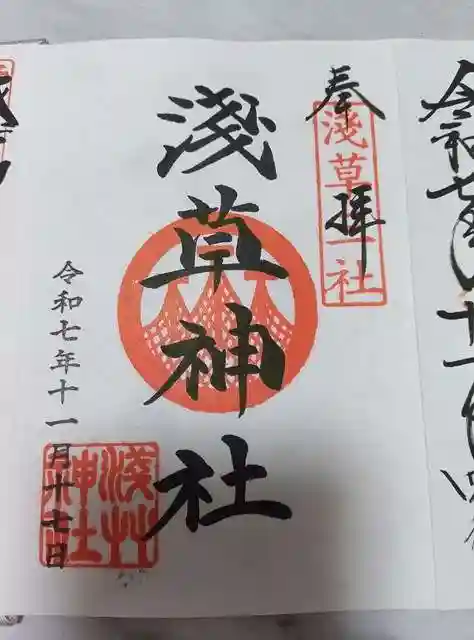 奉拝
淺草一社
淺草神社
淺草神社
令和七年十一月十七日
令和七年十一月